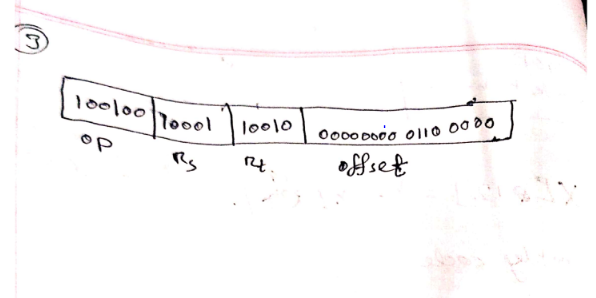 3
100100 10001 10010 00000000 0110 0000
op Rs Rt. offset